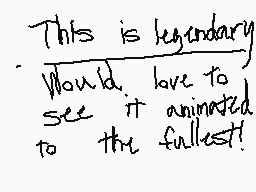 This is legendary
Would love to
see it animated
to the fullest!